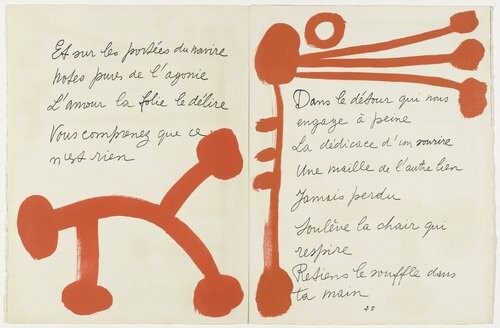 Et sur les portées du navire
Notes pures de l'agonie
L'amour la folie le délire
Vous comprenez que ce
n'est rien
Dans le détour qui nous
engage à peine
La dédicace d'un sourire
Une maille de l'autre lien
Jamais perdu
Soulève la chair qui
respire
Retiens le souffle dans
ta main
28